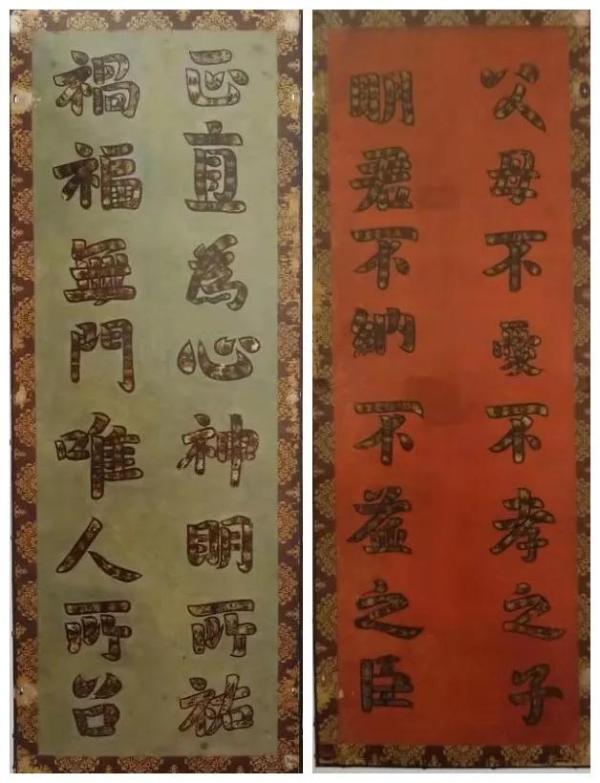 父母不愛不孝之子
明君不納不益之臣
正直為心神明所祐
禍福無門唯人所召